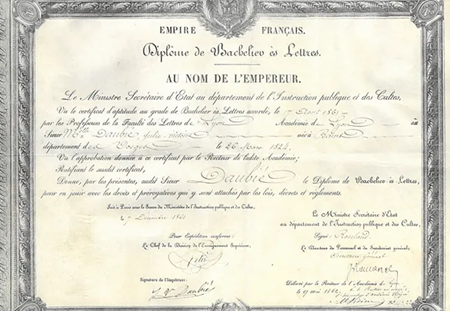 EMPIRE FRANÇAIS.
Diplôme de Bachelier ès Lettres.
AU NOM DE L'EMPEREUR.
Le Ministre Secrétaire d'Etat au département de l'Instruction publique et des Cultes,
Vu le certificat d'aptitude au grade de Bachelier ès Lettres accordé, le 17 Août 1861
par les Professeurs de la Faculté des Lettres de Lyon Académie de Lyon
au Sieur Mlle Daubié Julie Victoire né à
département des Vosges le 26 Mars 1824
Vu l'approbation donnée à ce certificat par le Recteur de ladite Académie;
Ratifiant le susdit certificat,
Donne, par les présentes, audit Sieur Daubié le Diplôme de Bachelier ès Lettres,
pour en jouir avec les droits et prérogatives qui y sont attachés par les lois, décrets et règlements.
Fait à Paris sous le Sceau du Ministère de l'Instruction publique et des Cultes,
Le Ministre Secrétaire d'Etat
au département de l'Instruction publique et des Cultes,
Signé Rouland
Pour Expédition conforme:
Le Chef de la Division de l'Enseignement Supérieur,
Le Directeur du Personnel et du Secrétariat général,
Signature de l'Impétrant:
Daubié
Délivré par le Recteur de l'Académie de Lyon